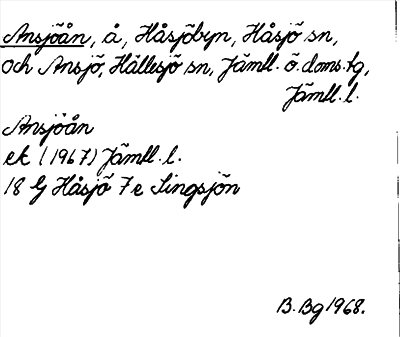 Ansjöån, å, Håsjöbyn, Håsjö sn,
och Ansjö, Hällesjö sn, Jämtl. ö. doms.tg,
Jämtl. l.
Ansjöån
ek (1967) Jämtl. l.
18 G Håsjö 7 e Singsjön
B. Bg 1968.